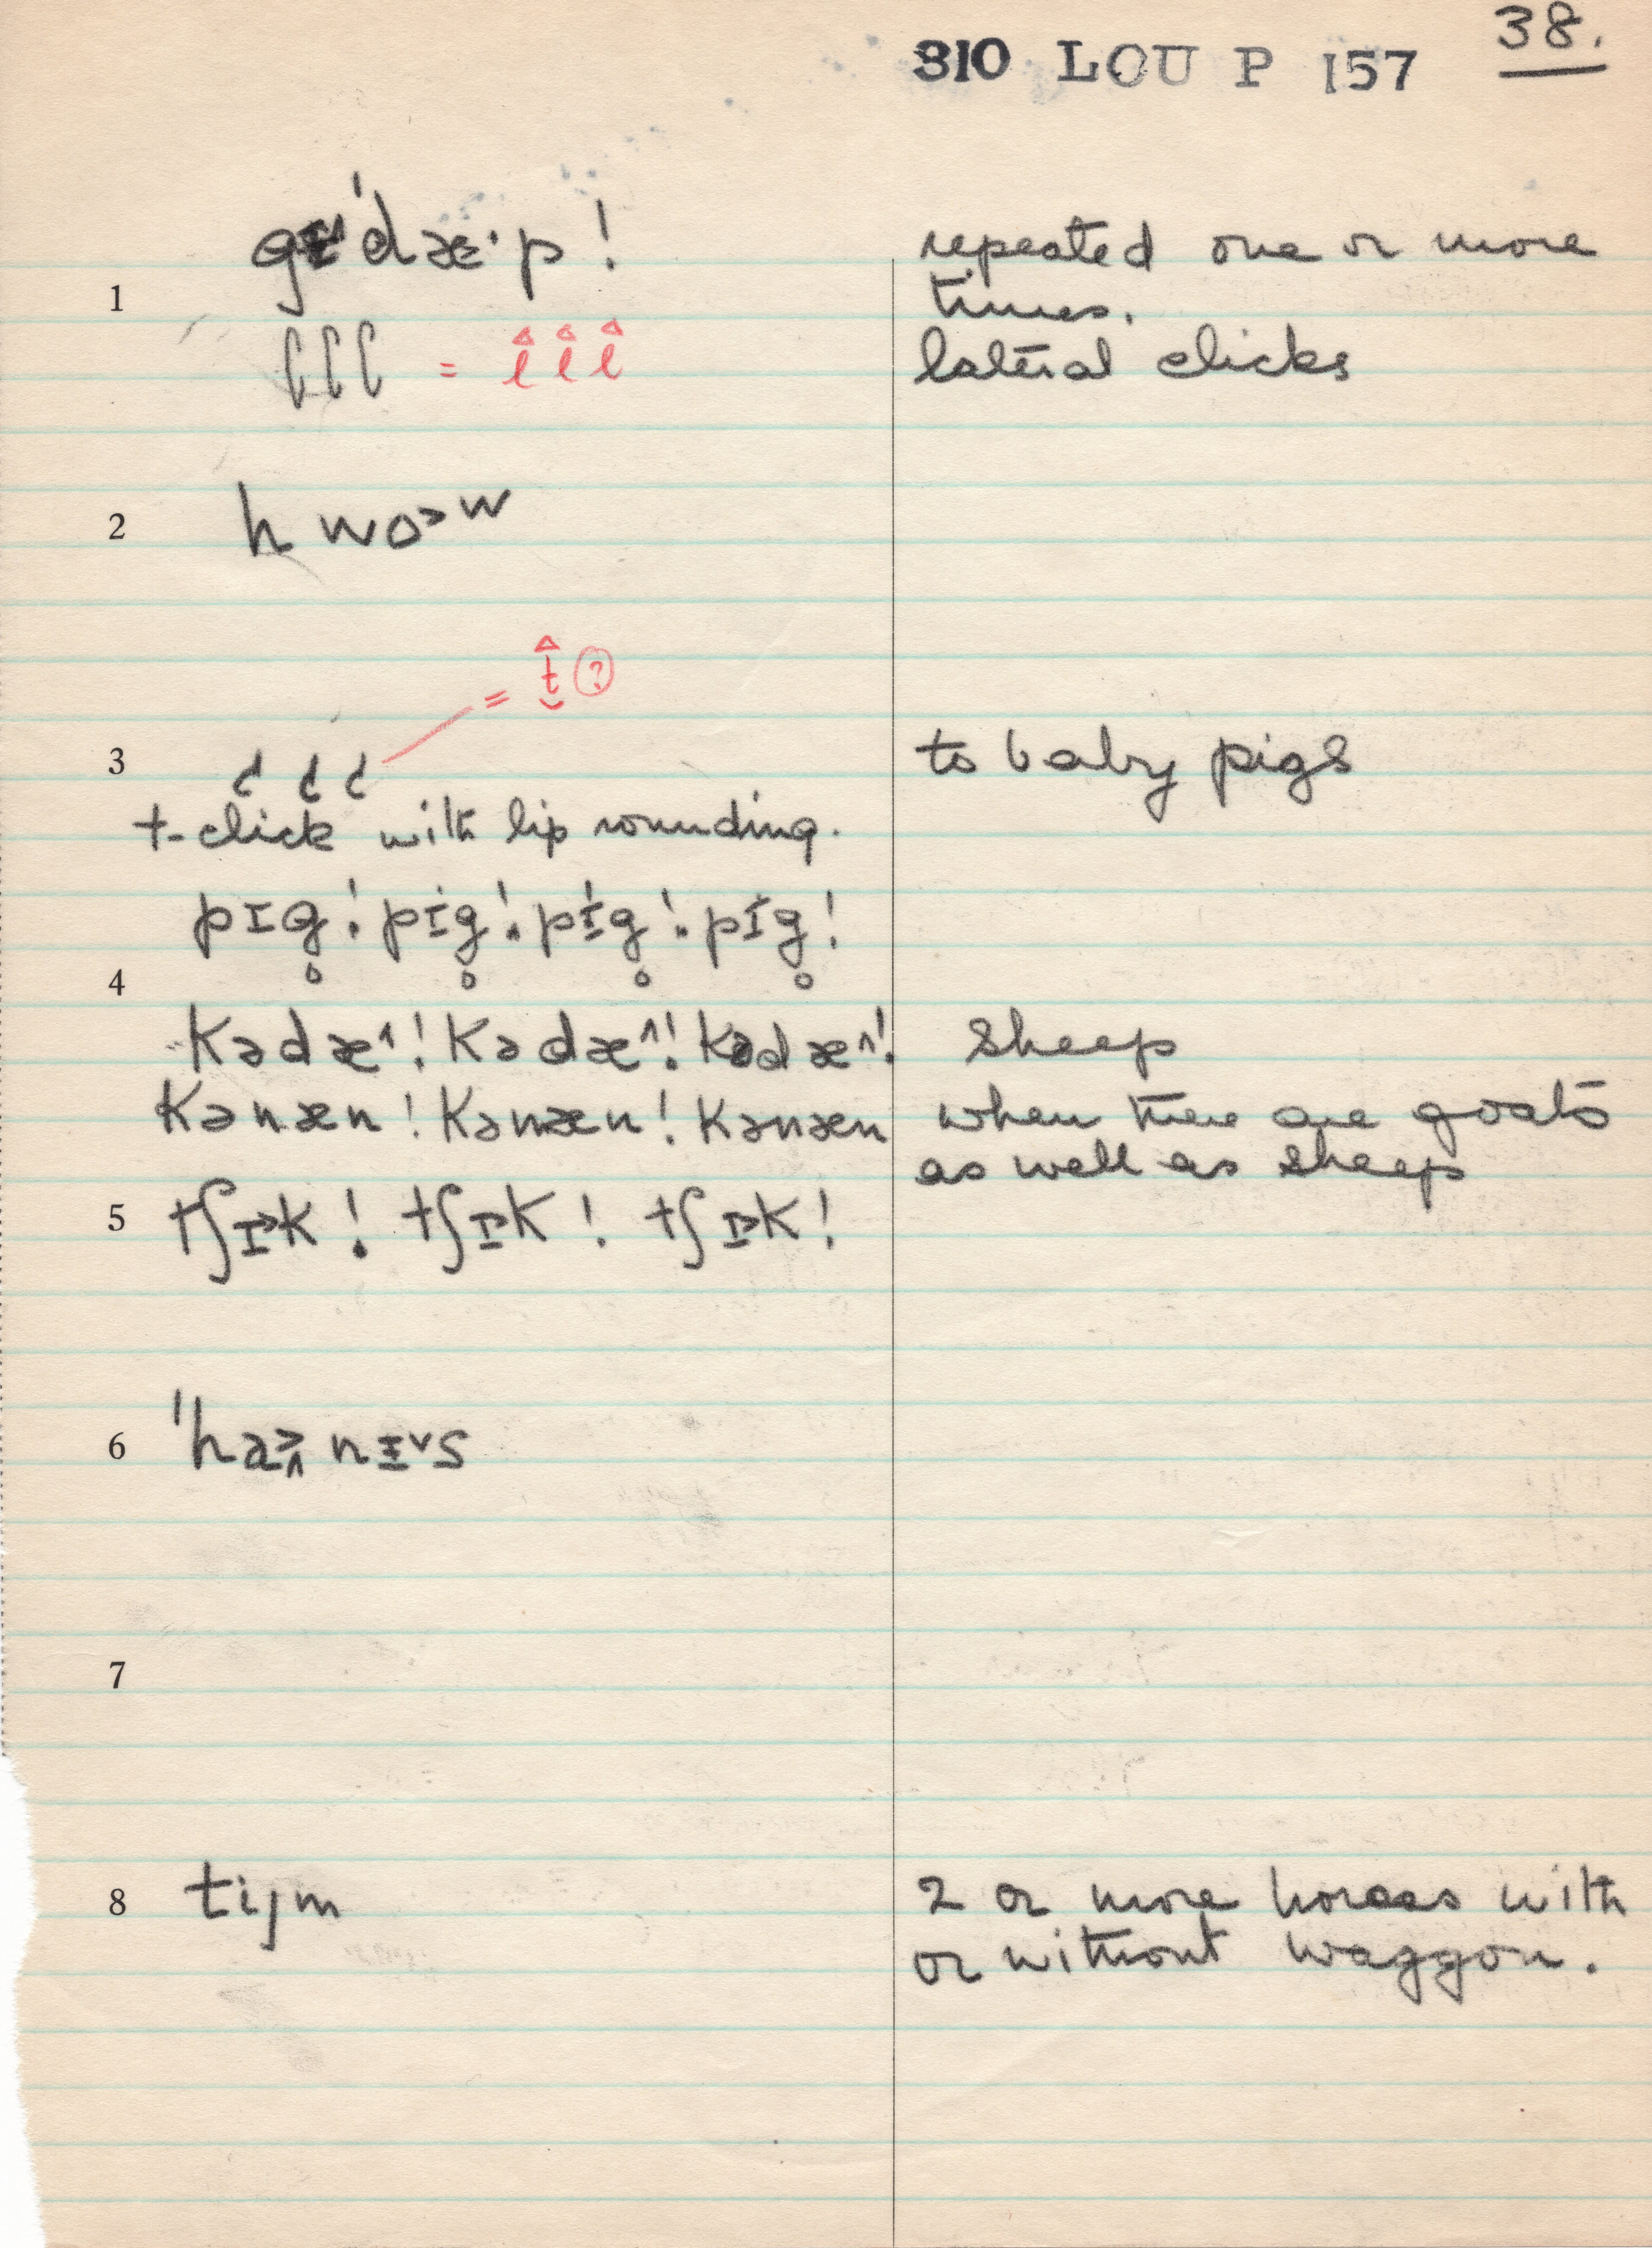 310 LOU P 157 38.
gɪ˄ˈdæ·p! repeated one or more
1 times.
ʖʖʖ = l̂ l̂ l̂ lateral clicks
2 hwo˃w
= t̮̂ ?
3 ʇ ʇ ʇ to baby pigs
t-click with lip rounding.
pɪg̥! pɪg̥! pɪg̥! pɪg̥!
4
kədæ˄! kədæ˄! kədæ˄! sheep
kənæn! kənæn! kənæn when there are goats
as well as sheep
5 tʃɪ˃k! tʃɪ˃k! tʃɪ˃k!
6 ˈha˃˄nɪ˅s
7
8 tijm 2 or more horses with
or without waggon.